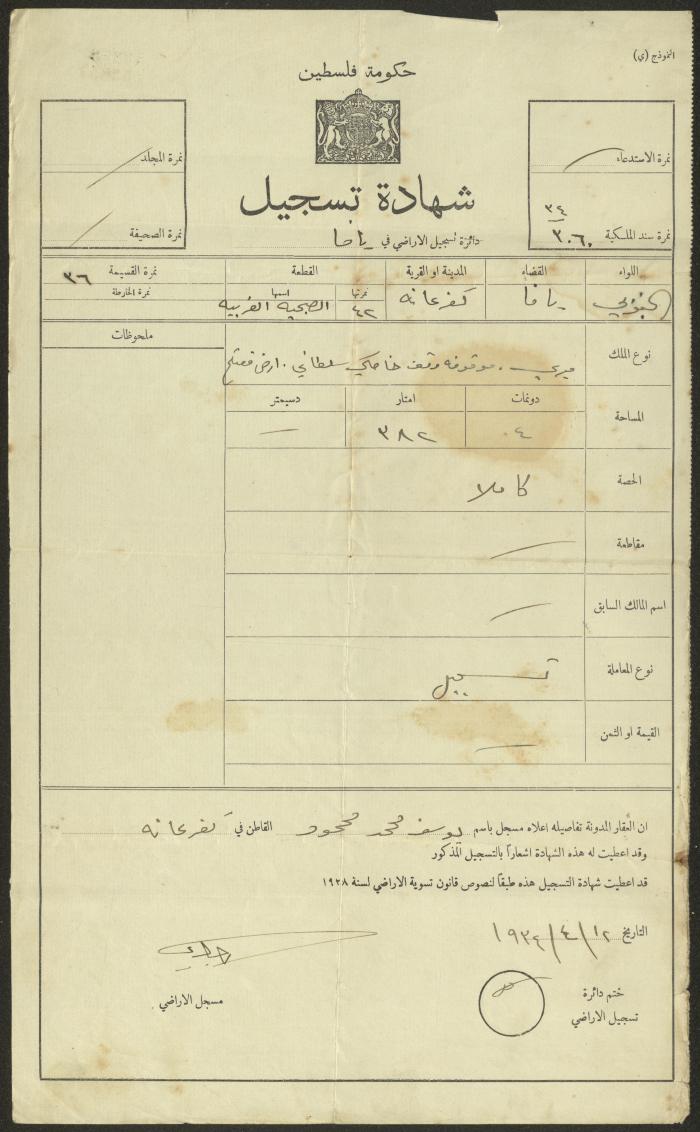 النموذج (ي)
حكومة فلسطين
نمرة الاستدعاء
نمرة سند الملكية ٣٠٦٠ / ٣٤
نمرة المجلد
نمرة الصحيفة
شهادة تسجيل
دائرة تسجيل الاراضي في يافا
اللواء القضاء المدينة او القرية القطعة نمرة القسيمة ٣٦
نمرتها اسمها نمرة الخارطة
الجنوبي يافا كفرعانه ٤٢ الصبحيه الغربيه
ملحوظات
نوع الملك ميري، موقوفه وقف خاصكي سلطاني. ارض
المساحة
دونمات امتار دسيمتر
٤ ٣٨٢ —
الحصة كاملا
مقاطعة —
اسم المالك السابق —
نوع المعاملة تسجيل
القيمة او الثمن —
ان العقار المدونة تفاصيله اعلاه مسجل باسم يوسف محمد محمود القاطن في كفرعانه
وقد اعطيت له هذه الشهادة اشعاراً بالتسجيل المذكور
قد اعطيت شهادة التسجيل هذه طبقاً لنصوص قانون تسوية الاراضي لسنة ١٩٢٨
التاريخ ١٢/٤/١٩٣٤
ختم دائرة
تسجيل الاراضي
مسجل الاراضي